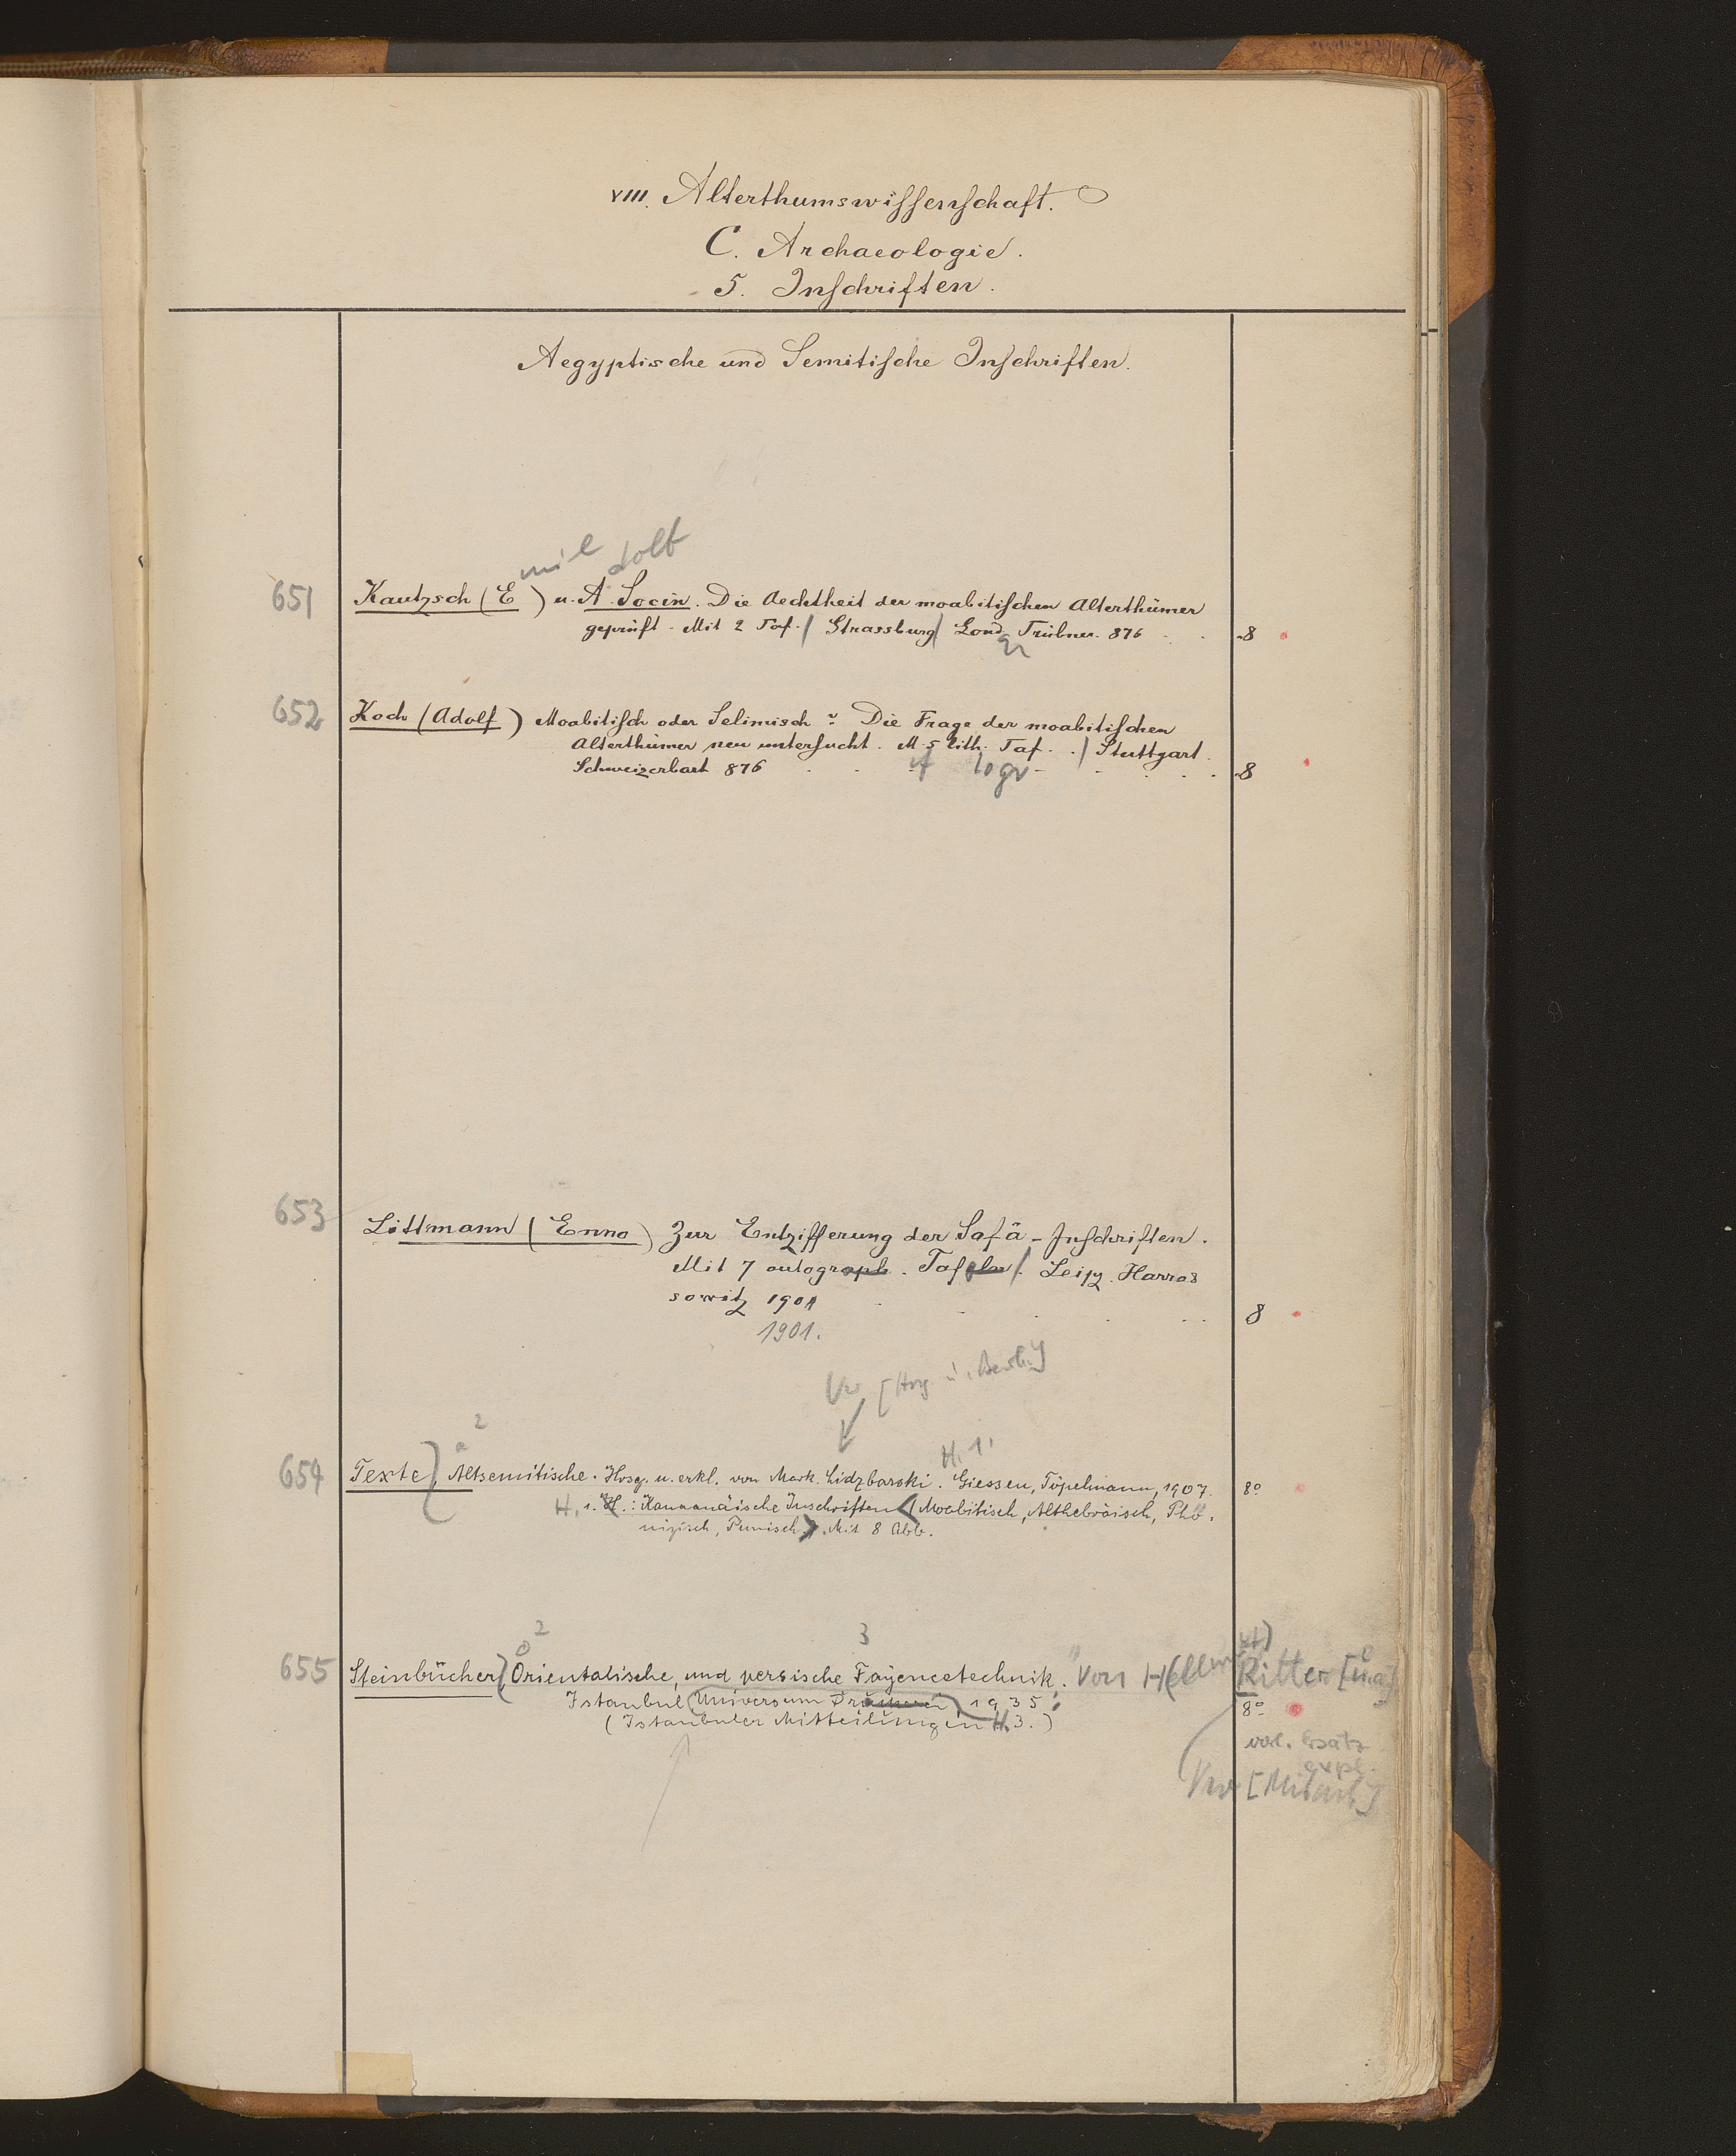 VIII. Alterthumswissenschaft.
C. Archaeologie.
5. Inschriften.
Aegyptische und Semitische Inschriften.
mil dolf
651 Kautzsch (E ) u. A. Socin. Die Aechtheit der moabitischen Alterthümer
geprüft. Mit 2 Taf. / Strassburg / Lond. Trübner. 876 . . 8
652 Koch (Adolf) Moabitisch oder Selimisch? Die Frage der moabitischen
Alterthümer neu untersucht. M. 5 lith. Taf. . / Stuttgart.
Schweizerbart 876 8
logr
653 Littmann (Enno) Zur Entzifferung der Safâ-Inschriften.
Mit 7 autograph. Tafeln /. Leipz. Harras
sowitz 1901 8
1901.
Vw [Hrsg. u.
2
H. 1.
654 Texte, Altsemitische. Hrsg. u. erkl. von Mark. Lidzbarski. Giessen, Töpelmann, 1907. 8°
H. 1. H.: Kanaanäische Inschriften (Moabitisch, Althebräisch, Phö-
nizisch, Punisch). Mit 8 Abb.
2 3
655 Steinbücher, Orientalische, und persische Fayencetechnik. Von Hellmut Ritter [u.a.]
Istanbul (Universum Druckerei) 1935. 8°
(Istanbuler Mitteilungen H. 3.)
verl. Ersatz
expl.
Vw [Mitarb.]